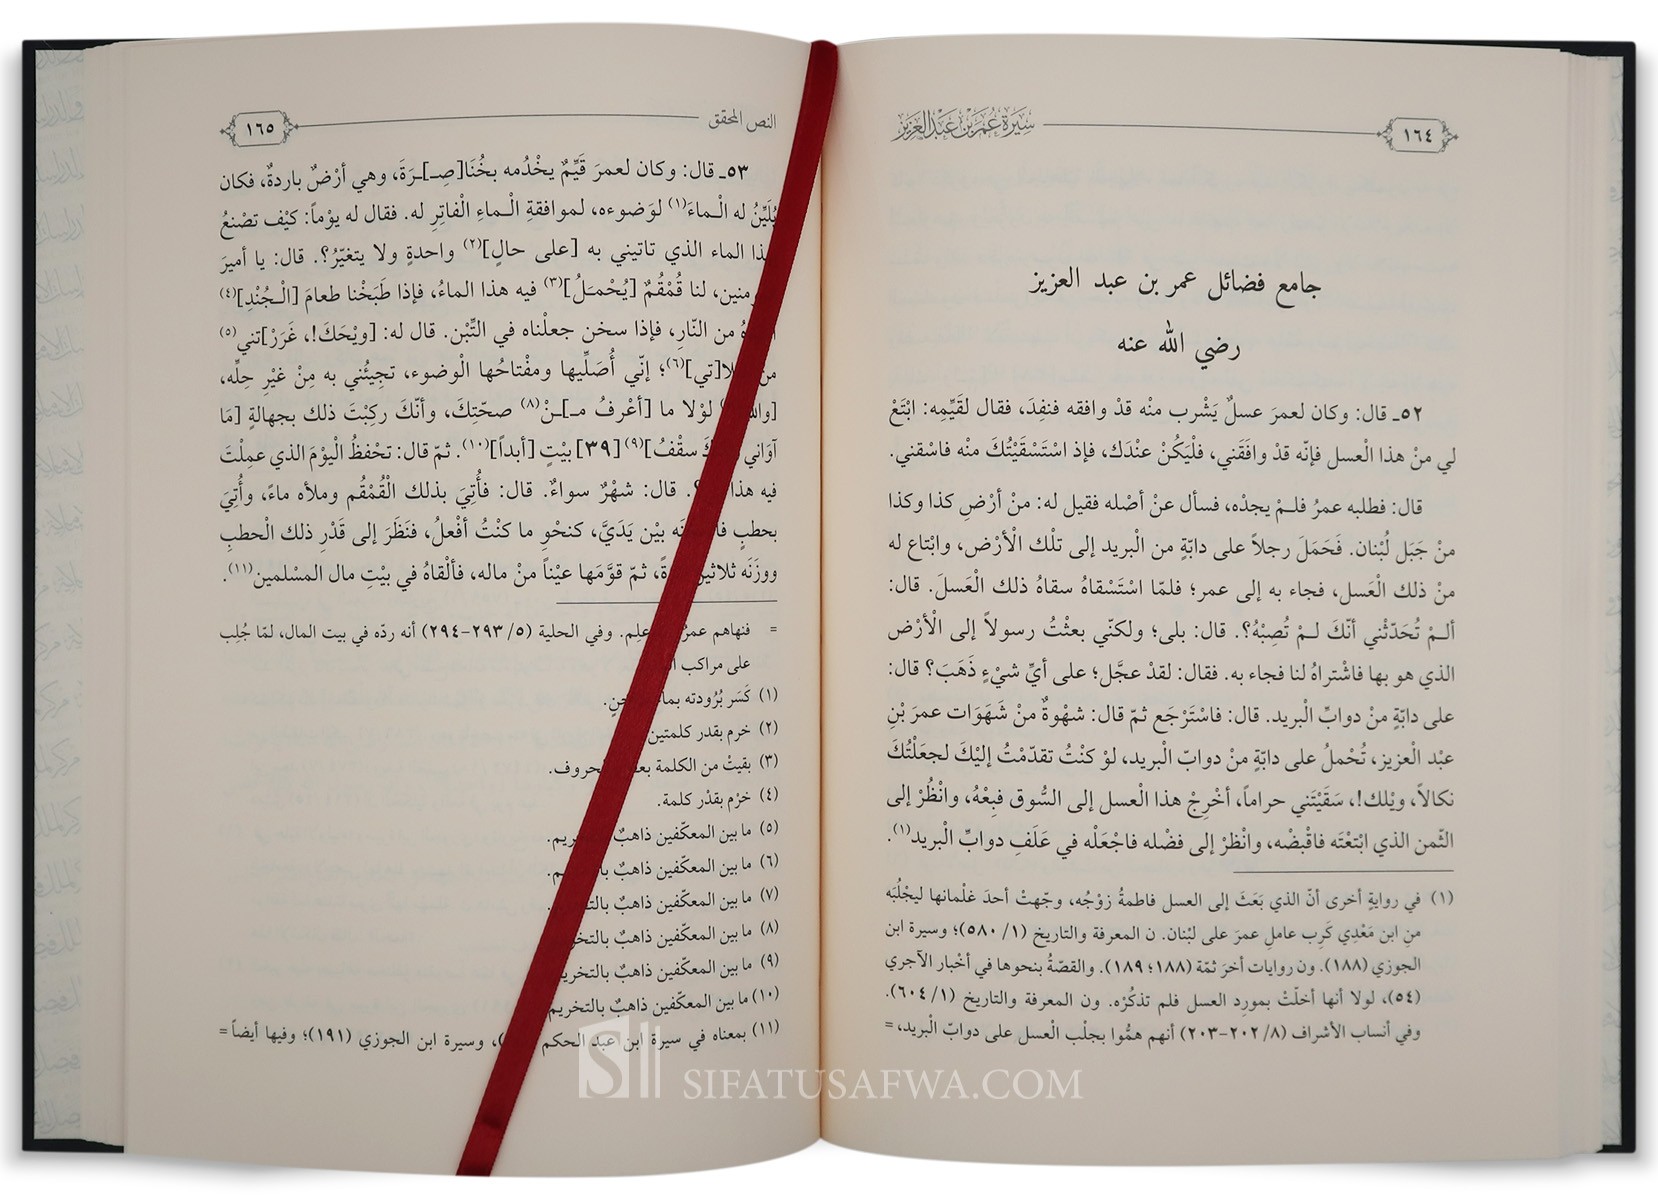 ١٦٤
سيرة عمر بن عبد العزيز
جامع فضائل عمر بن عبد العزيز
رضي الله عنه
٥٢ـ قال: وكان لعمرَ عسلٌ يَشْرب منْه قدْ وافقه فنفِدَ، فقال لقَيِّمِه: ابْتَعْ
لي منْ هذا العسل فإنّه قدْ وافَقَني، فلْيَكُنْ عنْدَك، فإذ اسْتَسْقَيْتُكَ منْه فاسْقني.
قال: فطلبه عمرُ فلـمْ يجدْه، فسأل عنْ أصْله فقيل له: منْ أرْضِ كذا وكذا
منْ جَبَل لُبْنان. فَحَمَلَ رجلاً على دابّةٍ من الْبريد إلى تلْك الْأرْض، وابْتاع له
منْ ذلك الْعَسل، فجاء به إلى عمر؛ فلمّا اسْتَسْقاهُ سقاه ذلك الْعَسلَ. قال:
ألـمْ تُحَدّثْني أنّكَ لـمْ تُصِبْهُ؟. قال: بلى؛ ولكنّي بعثْتُ رسولاً إلى الْأرْض
الذي هو بها فاشْتراهُ لنا فجاء به. فقال: لقدْ عجَّل؛ على أيِّ شيْءٍ ذَهَبَ؟ قال:
على دابّةٍ منْ دوابِّ الْبريد. قال: فاسْتَرْجَع ثمّ قال: شهْوةٌ منْ شَهَوَات عمرَ بْنِ
عبْد الْعزيز، تُحْملُ على دابّةٍ منْ دوابّ الْبريد، لوْ كنْتُ تقدّمْتُ إليْكَ لجعَلْتُكَ
نكالاً، ويْلك!، سَقَيْتَني حراماً، أخْرِجْ هذا الْعسل إلى السُّوق فبِعْهُ، وانْظُرْ إلى
الثّمن الذي ابْتعْتَه فاقْبضْه، وانْظرْ إلى فضْله فاجْعَلْه في عَلَفِ دوابِّ الْبريد(١).
(١) في روايةٍ أخرى أنّ الذي بَعَثَ إلى العسل فاطمةُ زوْجُه، وجّهتْ أحدَ غلْمانها ليجْلُبَه
منِ ابن مَعْدِي كَرِب عاملِ عمرَ على لبْنان. ن المعرفة والتاريخ (١/ ٥٨٠)؛ وسيرة ابن
الجوزي (١٨٨). ون روايات أخرَ ثمّة (١٨٨؛ ١٨٩). والقصّةُ بنحوها في أخْبار الآجري
(٥٤)، لولا أنها أخلّتْ بمورِد العسل فلم تذكُرْه. ون المعرفة والتاريخ (١/ ٦٠٤).
وفي أنساب الأشراف (٨/ ٢٠٢-٢٠٣) أنهم همُّوا بجلْب العسل على دوابّ الْبريد، =
النص المحقق
١٦٥
٥٣ـ قال: وكان لعمرَ قَيِّمٌ يخْدُمه بخُنَا[صِـ]ـرَةَ، وهي أرْضٌ باردةٌ، فكان
يُلَيِّنُ له الْـماءَ(١) لوَضوءه، لموافقةِ الْـماءِ الْفاتِرِ له. فقال له يوْماً: كيْف تصْنعُ
الماء الذي تاتيني به [على حالٍ](٢) واحدةٍ ولا يتغيّرُ؟. قال: يا أميرَ
لنا قُمْقُمٌ [يُحْمـَلُ](٣) فيه هذا الماءُ، فإذا طَبَخْنا طعامَ [الْـجُنْدِ](٤)
من النّارِ، فإذا سخن جعلْناه في التِّبْن. قال له: [ويْحَكَ!، غَرَرْ]تني(٥)
[تي](٦)؛ إنّي أُصَلِّيها ومفْتاحُها الْوضوء، تجيئُني به مِنْ غيْرِ حِلِّه،
لوْلا ما [أعْرفُ مـ]ـنْ(٨) صحّتِكَ، وأنّكَ ركِبْتَ ذلك بجهالةٍ [مَا
آوَاني سقْفُ](٩) [٣٩] بيْتٍ [أبداً](١٠). ثمّ قال: تحْفظُ الْيوْمَ الذي عمِلْتَ
فيه هذا قال: شهْرٌ سواءٌ. قال: فأُتِيَ بذلك الْقُمْقُم وملأه ماءً، وأُتِيَ
بحطبٍ بيْن يَدَيَّ، كنحْوِ ما كنْتُ أفْعلُ، فنَظَرَ إلى قَدْرِ ذلك الْحطبِ
ووزَنَه ثمّ قوَّمَها عيْناً منْ ماله، فألْقاهُ في بيْتِ مال المسْلمين(١١).
= فنهاهم عمرُ علِم. وفي الحلية (٥/ ٢٩٣-٢٩٤) أنه ردّه في بيت المال، لمّا جُلِب
على مراكب
(١) كَسَر بُرُودته
(٢) خرم بقدر كلمتين
(٣) بقيتْ من الكلمة الحروف.
(٤) خرْم بقدْر كلمة.
(٥) ما بين المعكّفين ذاهبٌ
(٦) ما بين المعكّفين ذاهبٌ
(٧) ما بين المعكّفين ذاهبٌ
(٨) ما بين المعكّفين ذاهبٌ
(٩) ما بين المعكّفين ذاهبٌ بالتخريم
(١٠) ما بين المعكّفين ذاهبٌ بالتخريم
(١١) بمعناه في سيرة ابن عبد الحكم وسيرة ابن الجوزي (١٩١)؛ وفيها أيضاً =
SIFATUSAFWA.COM